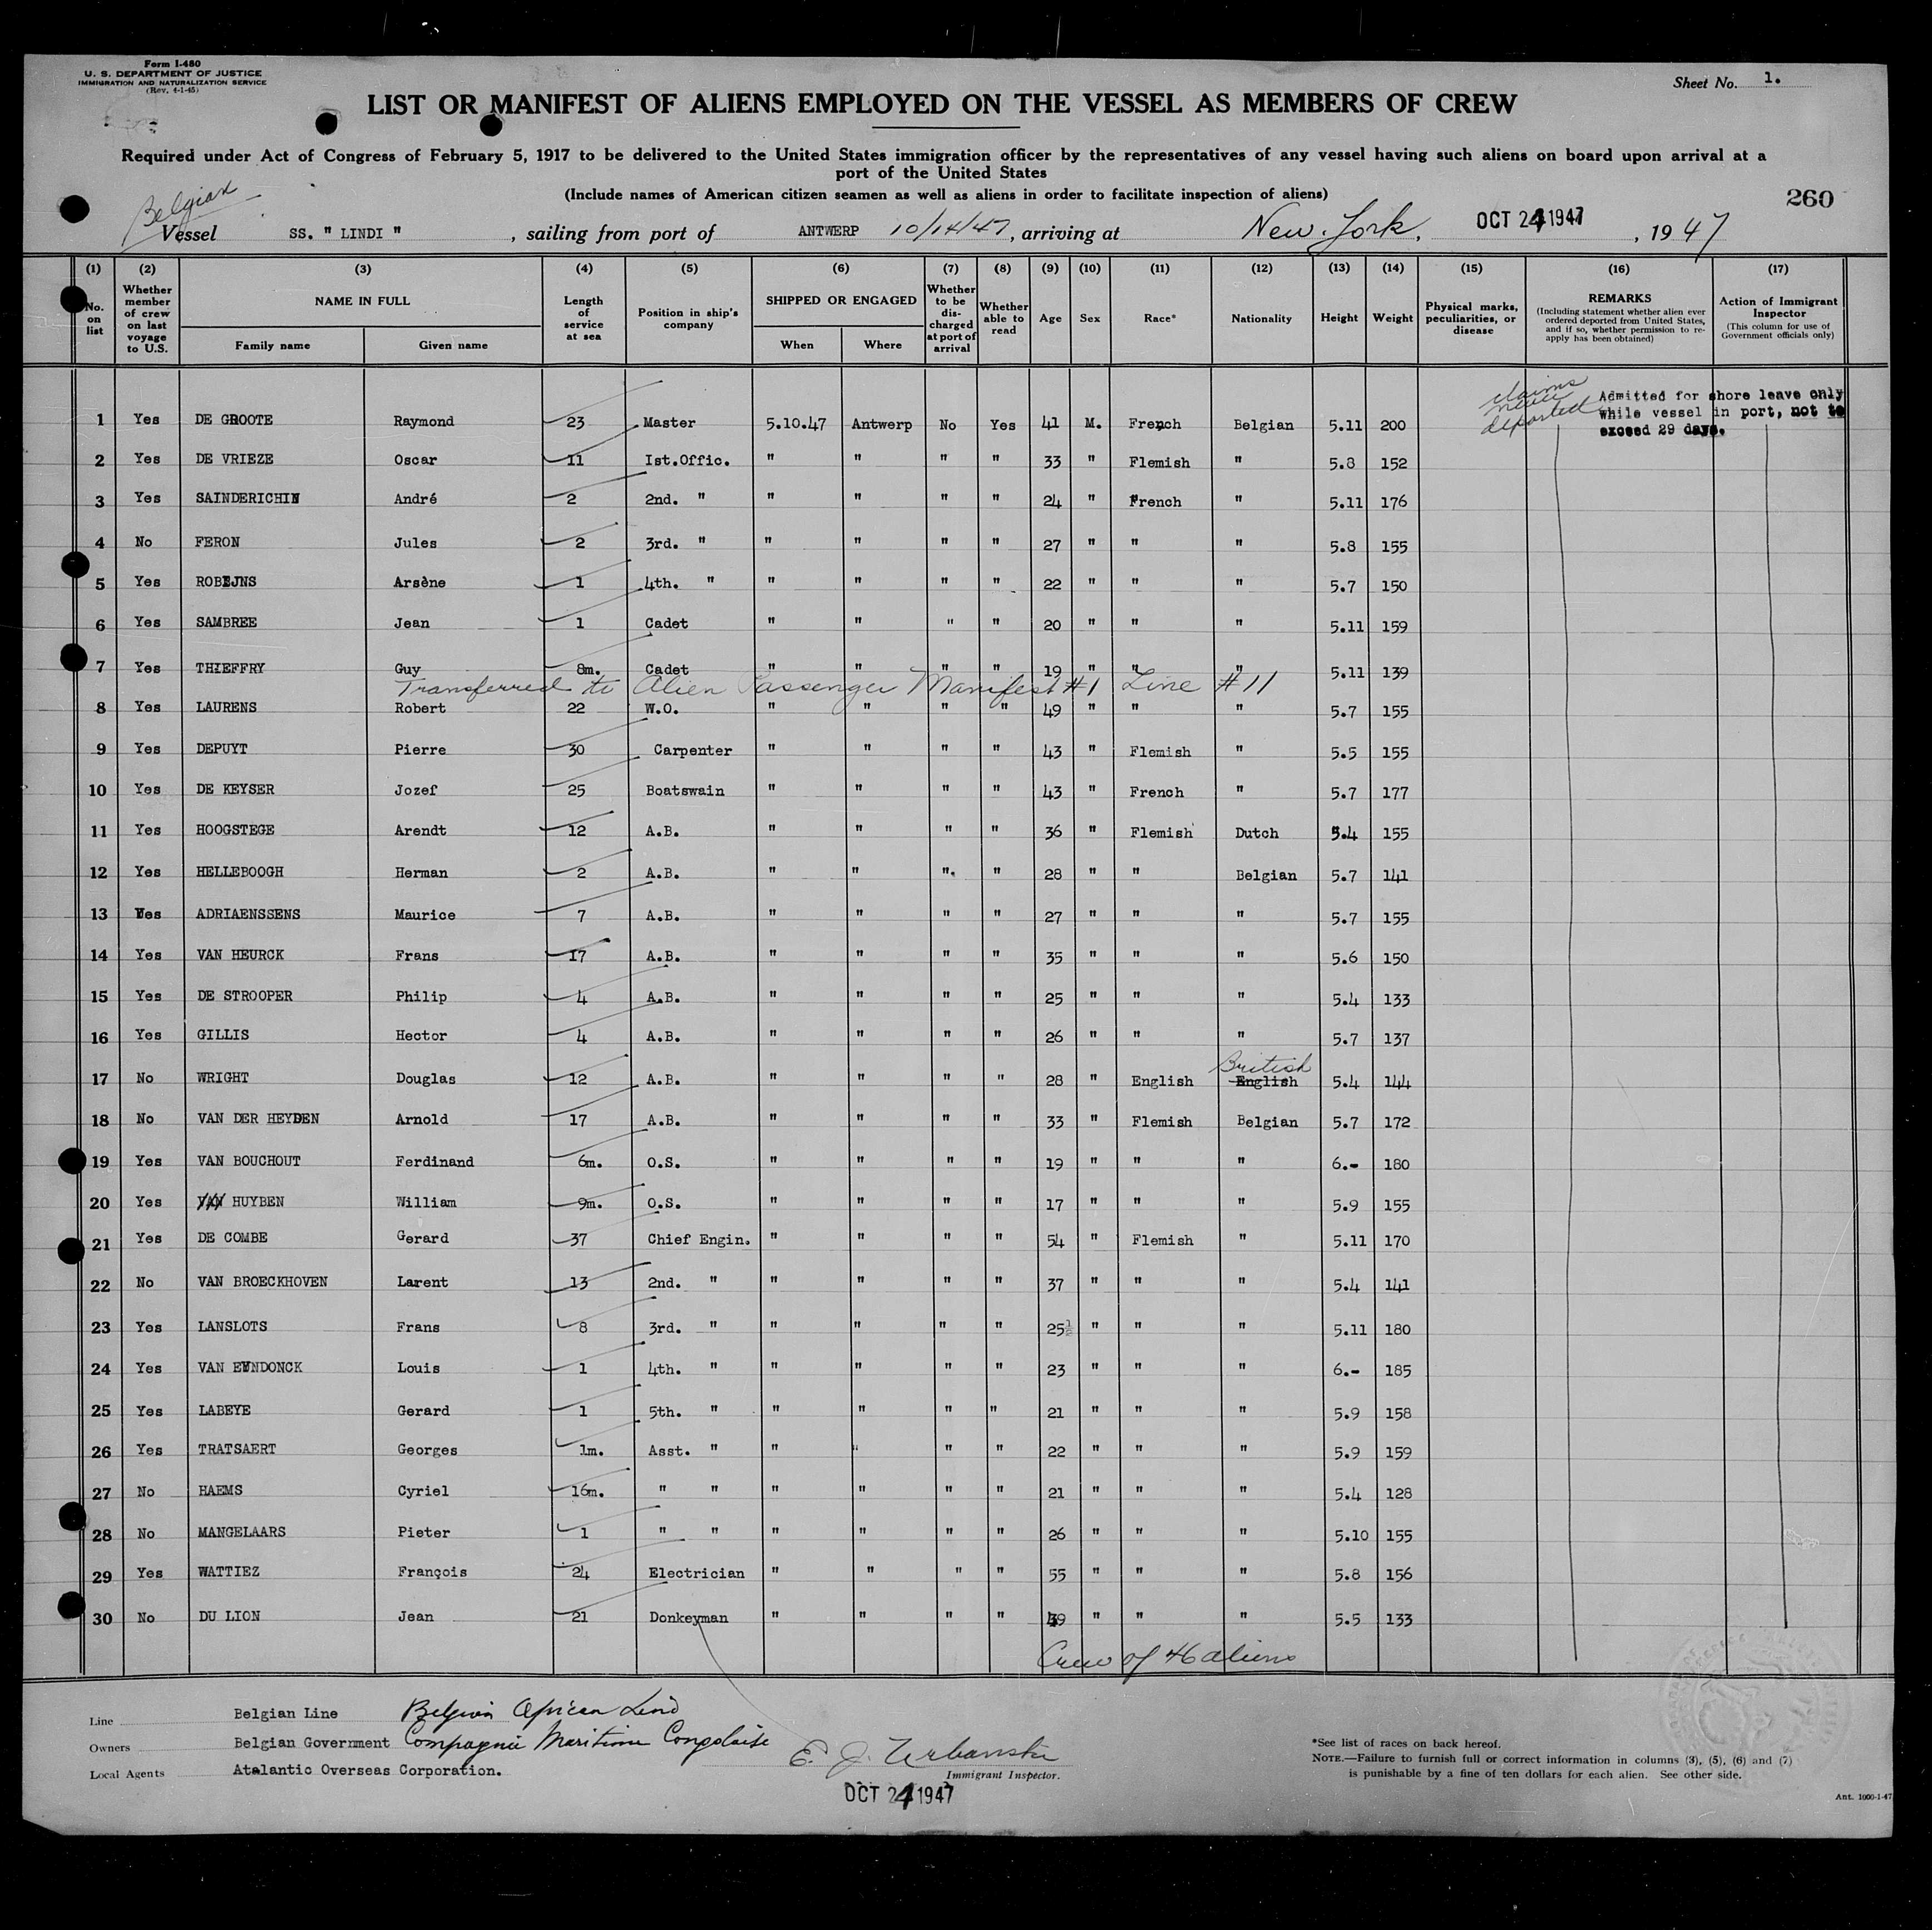 Form I-480
U. S. DEPARTMENT OF JUSTICE
IMMIGRATION AND NATURALIZATION SERVICE
(Rev. 4-1-45)
Sheet No. 1.
LIST OR MANIFEST OF ALIENS EMPLOYED ON THE VESSEL AS MEMBERS OF CREW
Required under Act of Congress of February 5, 1917 to be delivered to the United States immigration officer by the representatives of any vessel having such aliens on board upon arrival at a
port of the United States
(Include names of American citizen seamen as well as aliens in order to facilitate inspection of aliens)
260
Belgian
Vessel SS. " LINDI " , sailing from port of ANTWERP 10/14/47, arriving at New York, OCT 24 1947 , 1947
(1) (2) (3) (4) (5) (6) (7) (8) (9) (10) (11) (12) (13) (14) (15) (16) (17)
No. on list
Whether member of crew on last voyage to U.S.
NAME IN FULL
Family name Given name
Length of service at sea
Position in ship's company
SHIPPED OR ENGAGED
When Where
Whether to be discharged at port of arrival
Whether able to read
Age Sex Race* Nationality Height Weight
Physical marks, peculiarities, or disease
REMARKS
(Including statement whether alien ever ordered deported from United States, and if so, whether permission to re-apply has been obtained)
Action of Immigrant Inspector
(This column for use of Government officials only)
claims never deported
Admitted for shore leave only
while vessel in port, not to
exceed 29 days.
1 Yes DE GROOTE Raymond 23 Master 5.10.47 Antwerp No Yes 41 M. French Belgian 5.11 200
2 Yes DE VRIEZE Oscar 11 Ist.Offic. " " " " 33 " Flemish " 5.8 152
3 Yes SAINDERICHIN André 2 2nd. " " " " " 24 " French " 5.11 176
4 No FERON Jules 2 3rd. " " " " " 27 " " " 5.8 155
5 Yes ROBEJNS Arsène 1 4th. " " " " " 22 " " " 5.7 150
6 Yes SAMBREE Jean 1 Cadet " " " " 20 " " " 5.11 159
7 Yes THIEFFRY Guy 8m. Cadet " " " " 19 " " " 5.11 139
Transferred to Alien Passenger Manifest #1 Line #11
8 Yes LAURENS Robert 22 W.O. " " " " 49 " " " 5.7 155
9 Yes DEPUYT Pierre 30 Carpenter " " " " 43 " Flemish " 5.5 155
10 Yes DE KEYSER Jozef 25 Boatswain " " " " 43 " French " 5.7 177
11 Yes HOOGSTEGE Arendt 12 A.B. " " " " 36 " Flemish Dutch 5.4 155
12 Yes HELLEBOOGH Herman 2 A.B. " " ". " 28 " " Belgian 5.7 141
13 Yes ADRIAENSSENS Maurice 7 A.B. " " " " 27 " " " 5.7 155
14 Yes VAN HEURCK Frans 17 A.B. " " " " 35 " " " 5.6 150
15 Yes DE STROOPER Philip 4 A.B. " " " " 25 " " " 5.4 133
16 Yes GILLIS Hector 4 A.B. " " " " 26 " " " 5.7 137
British
17 No WRIGHT Douglas 12 A.B. " " " " 28 " English English 5.4 144
18 No VAN DER HEYDEN Arnold 17 A.B. " " " " 33 " Flemish Belgian 5.7 172
19 Yes VAN BOUCHOUT Ferdinand 6m. O.S. " " " " 19 " " " 6.- 180
20 Yes VAN HUYBEN William 9m. O.S. " " " " 17 " " " 5.9 155
21 Yes DE COMBE Gerard 37 Chief Engin. " " " " 54 " Flemish " 5.11 170
22 No VAN BROECKHOVEN Larent 13 2nd. " " " " " 37 " " " 5.4 141
23 Yes LANSLOTS Frans 8 3rd. " " " " " 25½ " " " 5.11 180
24 Yes VAN EYNDONCK Louis 1 4th. " " " " " 23 " " " 6.- 185
25 Yes LABEYE Gerard 1 5th. " " " " " 21 " " " 5.9 158
26 Yes TRATSAERT Georges 1m. Asst. " " " " " 22 " " " 5.9 159
27 No HAEMS Cyriel 16m. " " " " " " 21 " " " 5.4 128
28 No MANGELAARS Pieter 1 " " " " " " 26 " " " 5.10 155
29 Yes WATTIEZ François 24 Electrician " " " " 55 " " " 5.8 156
30 No DU LION Jean 21 Donkeyman " " " " " " " 5.5 133
Crew of 46 aliens
Line Belgian Line Belgian African Line
Owners Belgian Government Compagnie Maritime Congolaise
Local Agents Atalantic Overseas Corporation.
E. J. Urbanski
Immigrant Inspector.
OCT 24 1947
*See list of races on back hereof.
NOTE.—Failure to furnish full or correct information in columns (3), (5), (6) and (7)
is punishable by a fine of ten dollars for each alien. See other side.
Ant. 1000-1-47